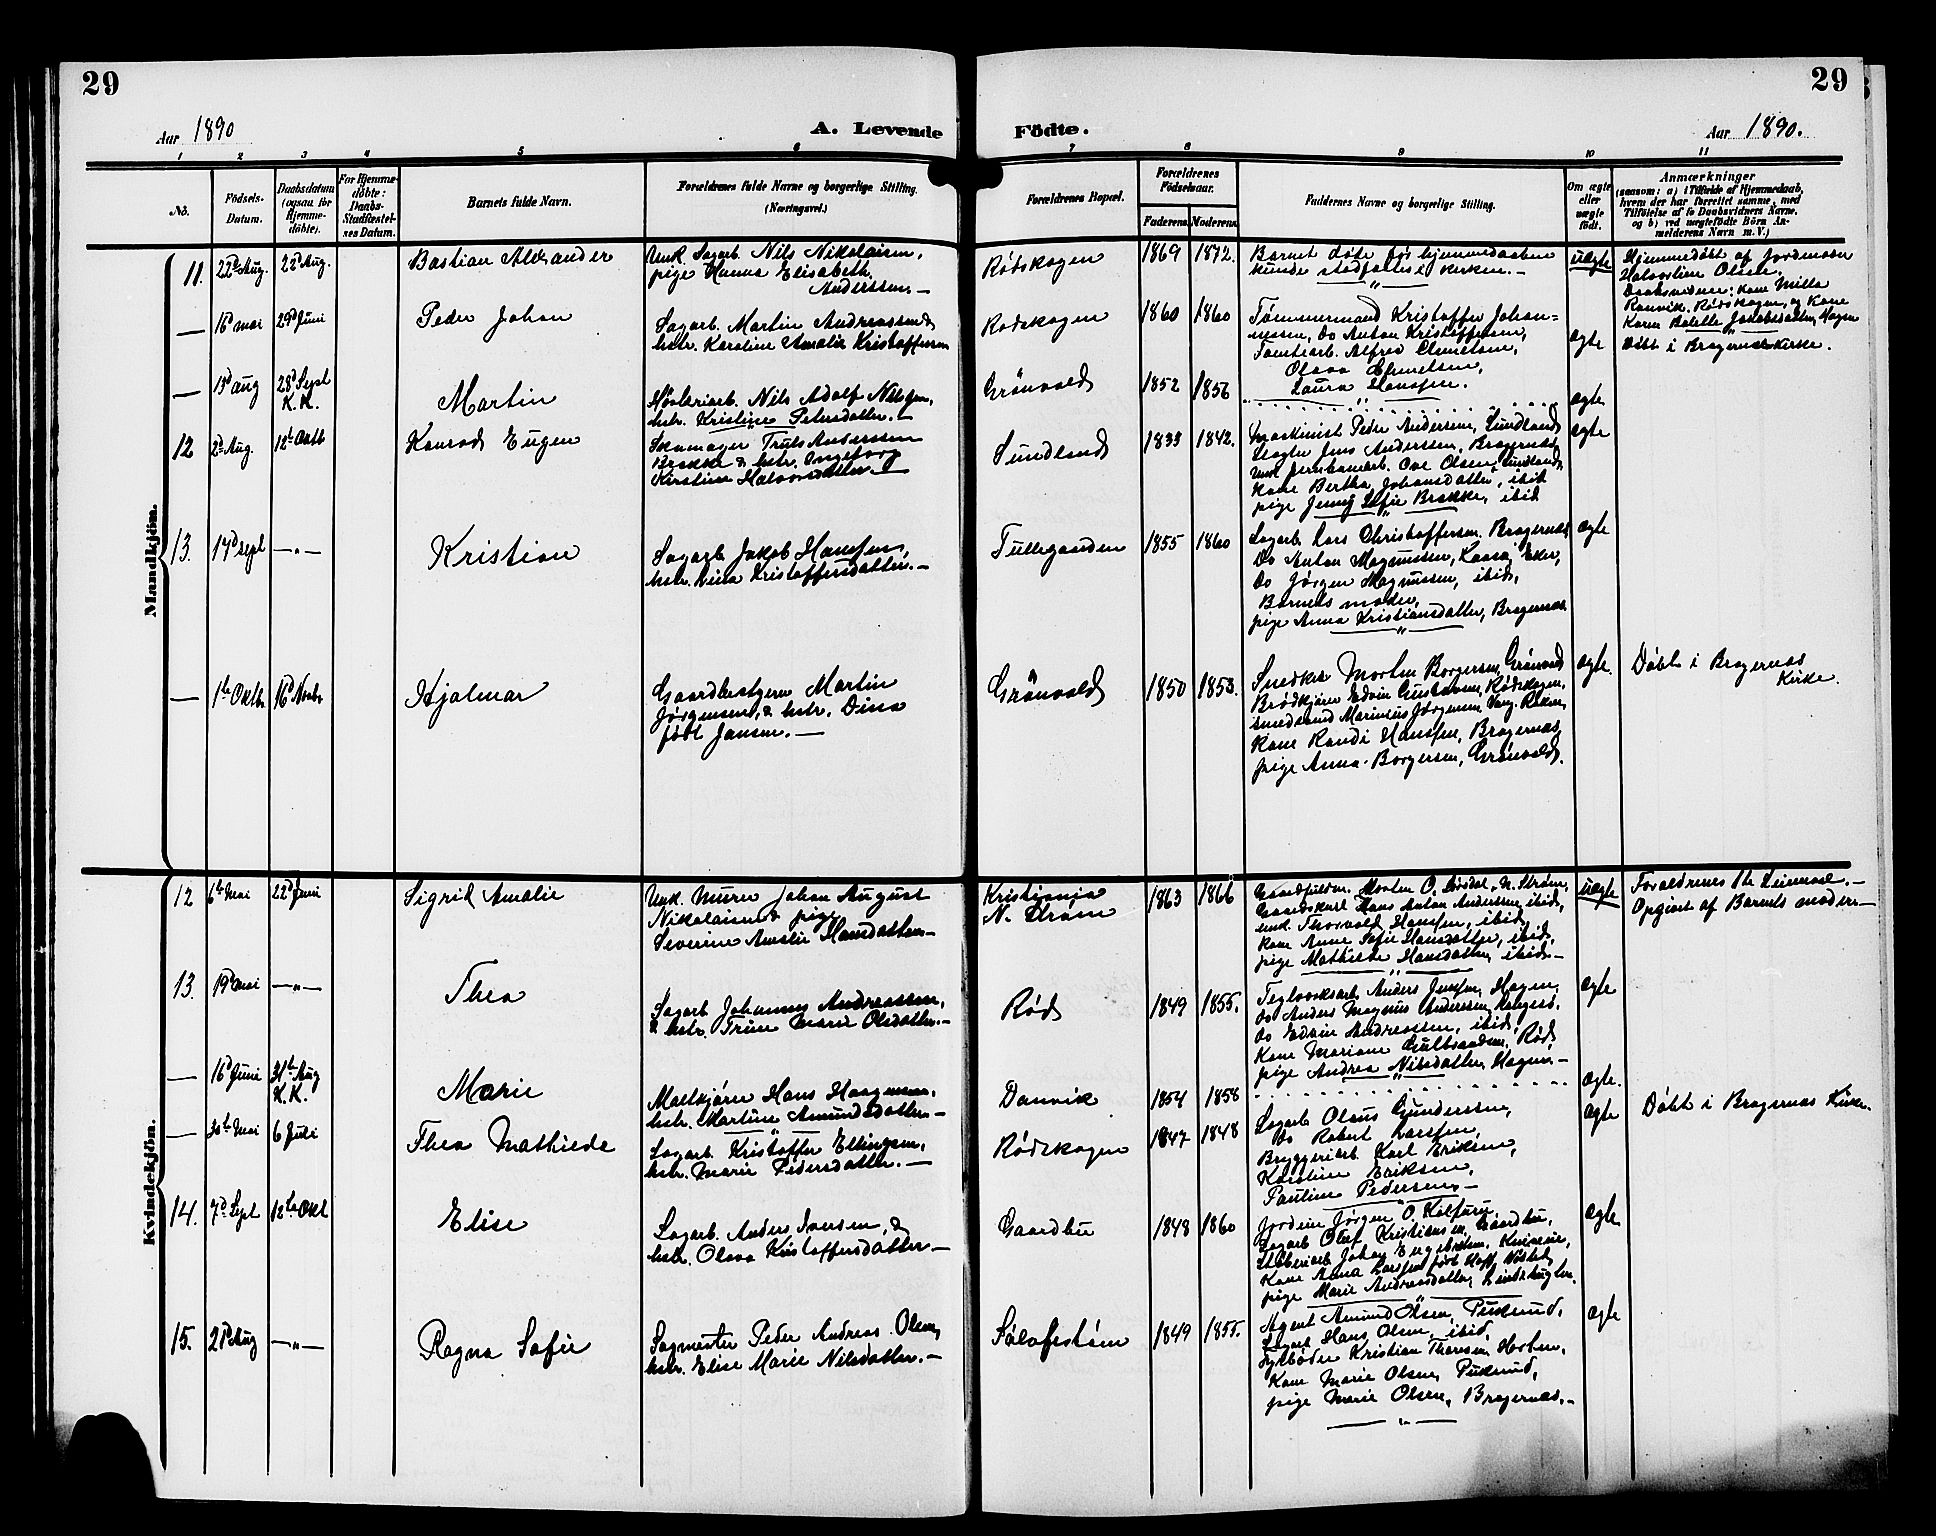 29
29
Aar 1890
A. Levende
Födte.
Aar 1890.
1 2 3 4 5 6 7 8 9 10 11
No.
Födsels-
Datum.
Daabsdatum
(ogsaa for
Hjemme-
döbte).
For Hjemme-
döbte:
Daabs-
Stadfæstel-
ses Datum.
Barnets fulde Navn.
Forældrenes fulde Navne og borgerlige Stilling.
(Næringsvei.)
Forældrenes Bopæl.
Forældrenes
Födselsaar.
Faderens. Moderens.
Faddernes Navne og borgerlige Stilling.
Om ægte
eller
uægte
födt.
Anmærkninger
(saasom: a) i Tilfælde af Hjemmedaab,
hvem der har forrettet samme, med
Tilföielse af to Daabsvidners Navne,
og b) ved uægtefödte Börn An-
melderens Navn m. V.)
Mandkjön.
11. 22d Aug. 22d Aug.
Bastian Alexander
Unk Sagarb. Nils Nikolaisen,
pige Hanna Elisabeth
Anderssen. —
Rødskogen
1869 1872.
Barnet døde før hjemmedaaben
kunde stadfæstes i kirken. —
uægte
Hjemmedøbt af Jordemoder
Halvordine Olsen.
Daabsvidner: Kone Milla
Ranvik, Rødskogen, og Kone
Karen Bolette Jakobsdatter, Hagen
— 16d mai 29d Juni
Peder Johan
Sagarb. Martin Andreassen &
hstr. Karoline Amalie Kristoffersen
Rødskogen
1860 1860
Tømmermand Kristoffer Johan-
nessen, Do Anton Kristoffersen,
Tomtearb. Alfred Clemetsen,
Olava Clemetsen,
Laura Hanssen.
ægte
Døbt i Bragernæs Kirke.
— 13d aug 28d Sept
K. K.
Martin
Høvleriarb. Nils Adolf Nilssen,
hstr. Kristine Petersdatter. —
Grønvold
1852 1856
ægte
12 2d Aug. 12te Oktb
Konrad Eugen
Skomager Truls Anderssen
Brække & hstr. Ingeborg
Kirstine Halvorsdatter. —
Sundland
1835 1842.
Maskinist Peder Andersen, Sundland
Slagter Jens Anderssen, Bragernæs,
Unk jernbanearb. Ove Olsen, Sundland,
Kone Bertha Johansdatter, ibid
pige Jenny Sofie Brække, ibid
ægte
13. 17d sept —"—
Kristian
Sagarb. Jakob Hanssen,
hstr. Lina Kristoffersdatter. —
Tulleganden
1855 1860
Sagarb Lars Christoffersen, Bragernæs
Do Anton Magnussen, Kaasa, Eker,
Do Jørgen Magnussen, ibid,
Barnets moder,
pige Anna Kristiansdatter, Bragernæs
ægte
— 1ste Oktbr 16d Novbr
Hjalmar
Gaardbestyrer Martin
Jørgensen, & hstr. Dina
født Jansen. —
Grønvold
1850 1853.
Snedker Morten Borgersen, Grønvold
Brødkjører Edvin Gustavsen, Rødskogen,
Smedsvend Marinius Jørgensen,
Kone Randi Hanssen, Bragernæs,
pige Anna Borgersen, Grønvold.
ægte.
Døbt i Bragernæs
Kirke.
Kvindekjön.
12 6te Mai 22d Juni
Sigrid Amalie
Unk. Murer Johan August
Nikolaisen & pige
Severine Amalie Hansdatter —
Kristiania
N. Strøm
1863 1866
Morten O. N. Strøm,
Gaardskarl Hans Anton Andersen, ibid,
unk. Thorvald Hanssen, ibid,
Kone Anne Sofie Hansdatter, ibid,
pige Mathilde Hansdatter, ibid —
uægte
Forældrenes 1ste Leiermaal. —
Opgivet af Barnets moder —
13. 19d mai —"—
Thea
Sagarb Johannes Andreassen,
& hstr. Trine Marie Olsdatter. —
Rød
1849 1855.
Teglværksarb. Anders Jensen, Hagen,
Do Anders Magnus Andersen,
Do Edvin Andreassen, ibid,
Kone Mariane Gulbrandsen, Rød,
pige Andrea Nilsdatter, Hagen —
ægte
— 16d Juni 31te Aug
K. K.
Marie
Mælkjører Hans Haagensen,
hstr. Martine Amundsdatter —
Danvik
1854 1858
ægte.
— 30te Mai 6 Juli
Thea Mathilde
Sagarb. Kristoffer Ellingsen,
hstr. Marie Pedersdatter. —
Rødskogen
1847 1848
Sagarb Olaus Gundersen,
Do Robert Larssen,
Bryggeriarb Karl Eriksen,
Karoline Eriksen,
Pauline Pedersen, —
ægte
Døbt i Bragernæs Kirke.
14. 7d Sept 12te Okt
Elise
Sagarb. Anders Iversen &
hstr. Olava Kristoffersdatter —
Gaardbu
1848 1860
Jordeier Jørgen O.
Sagarb Oluf Kristiansen, Gaardbu,
Støberiarb Johan Engebretsen,
Kone Anna Larssen født Hoff, Nøsted
pige Marie Andreasdatter,
ægte
15. 21d Aug —"—
Ragna Sofie
Sagmester Peder Andreas Olsen,
hstr. Elise Marie Nilsdatter. —
Sølafestøm
1849 1855.
Agent Amund Olsen, Pukerud,
Hans Olsen, ibid,
Fyrbøder Kristian Thoresen, Horten,
Kone Marie Olsen, Pukerud,
pige Marie Olsen, Bragernæs. —
ægte